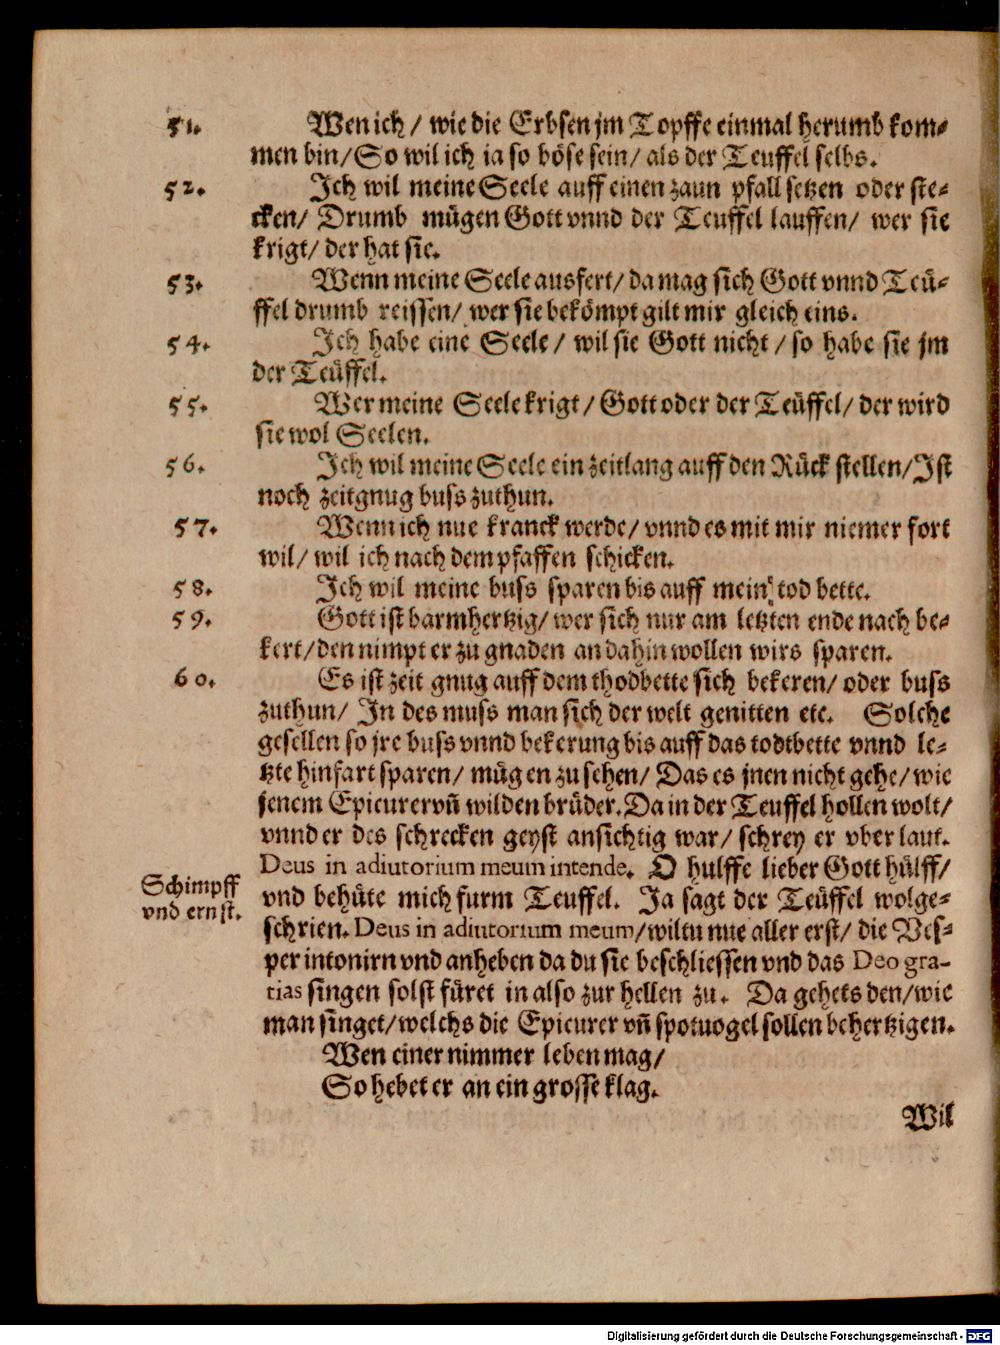 51. Wen ich / wie die Erbsen jm Topffe einmal herumb kom-
men bin/ So wil ich ja so böse sein/ als der Teuffel selbs.
52. Ich wil meine Seele auff einen zaun pfall setzen oder ste-
cken/ Drumb mügen Gott vnnd der Teuffel lauffen/ wer sie
krigt/ der hat sie.
53. Wenn meine Seele ausfert/ da mag sich Gott vnnd Teü-
ffel drumb reissen/ wer sie bekömpt gilt mir gleich eins.
54. Ich habe eine Seele/ wil sie Gott nicht / so habe sie jm
der Teüffel.
55. Wer meine Seele krigt/ Gott oder der Teüffel/ der wird
sie wol Seelen.
56. Ich wil meine Seele ein zeitlang auff den Rück stellen/ Ist
noch zeitgnug buss zuthun.
57. Wenn ich nue kranck werde/ vnnd es mit mir niemer fort
wil/ wil ich nach dem pfaffen schicken.
58. Ich wil meine buss sparen bis auff mein tod bette.
59. Gott ist barmhertzig/ wer sich nur am letzten ende nach be-
kert/ den nimpt er zu gnaden an dahin wollen wirs sparen.
60. Es ist zeit gnug auff dem thodbette sich bekeren/ oder buss
zuthun/ In des muss man sich der welt genitten etc. Solche
gesellen so jre buss vnnd bekerung bis auff das todtbette vnnd le-
tzte hinfart sparen/ mügen zu sehen/ Das es jnen nicht gehe/ wie
jenem Epicurer vn̄ wilden brüder. Da in der Teuffel hollen wolt/
vnnd er des schrecken geyst ansichtig war/ schrey er vber laut.
Deus in adiutorium meum intende. O hulffe lieber Gott hülff/
Schimpff
vnd ernst.
vnd behüte mich furm Teuffel. Ja sagt der Teüffel wolge-
schrien. Deus in adiutorium meum/ wiltu nue aller erst/ die Ves-
per intonirn vnd anheben da du sie beschliessen vnd das Deo gra-
tias singen solst füret in also zur hellen zu. Da gehets den/ wie
man singet/ welchs die Epicurer vn̄ spotuogel sollen behertzigen.
Wen einer nimmer leben mag/
So hebet er an ein grosse klag.
Wil
Digitalisierung gefördert durch die Deutsche Forschungsgemeinschaft - DFG